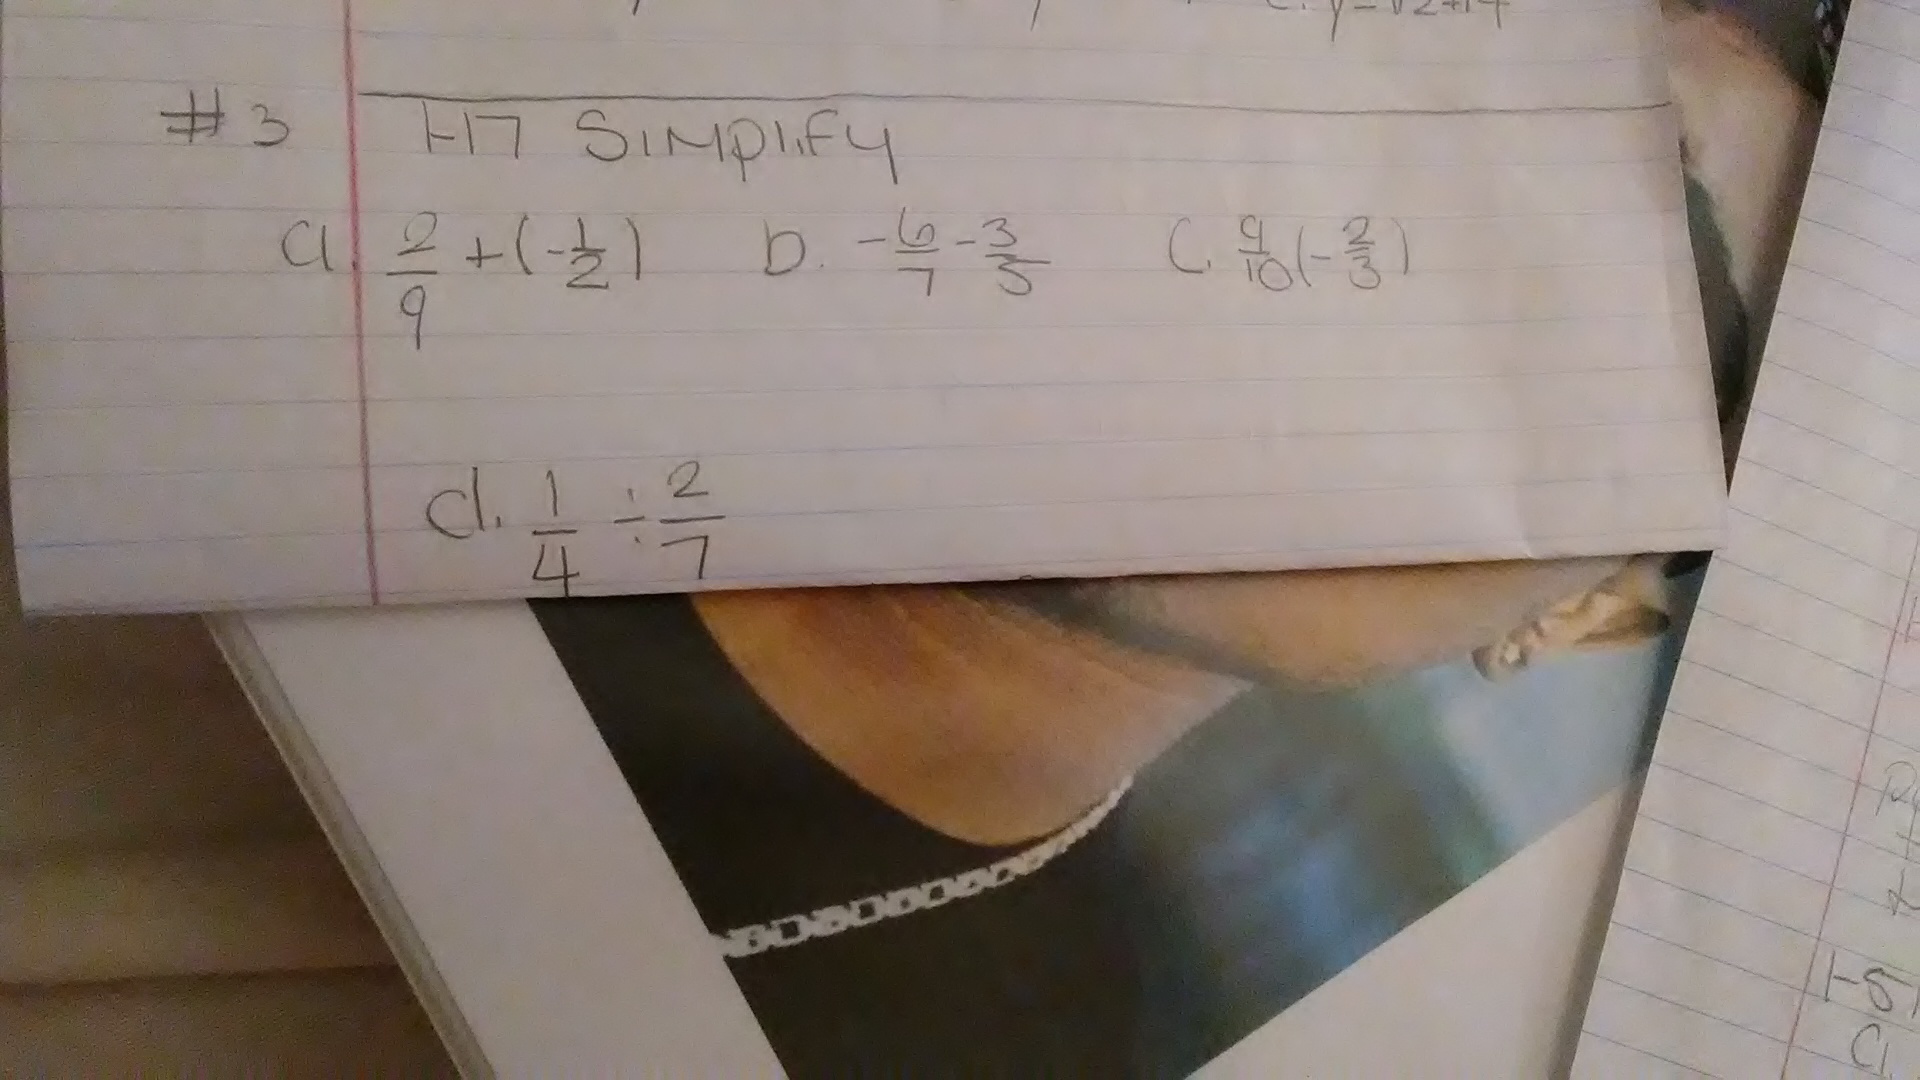 C. y=√2+14
#3 1-17 Simplify
a. 2/9 + (-1/2) b. -6/7 - 3/5 C. 9/10 (-2/3)
d. 1/4 ÷ 2/7
1-51